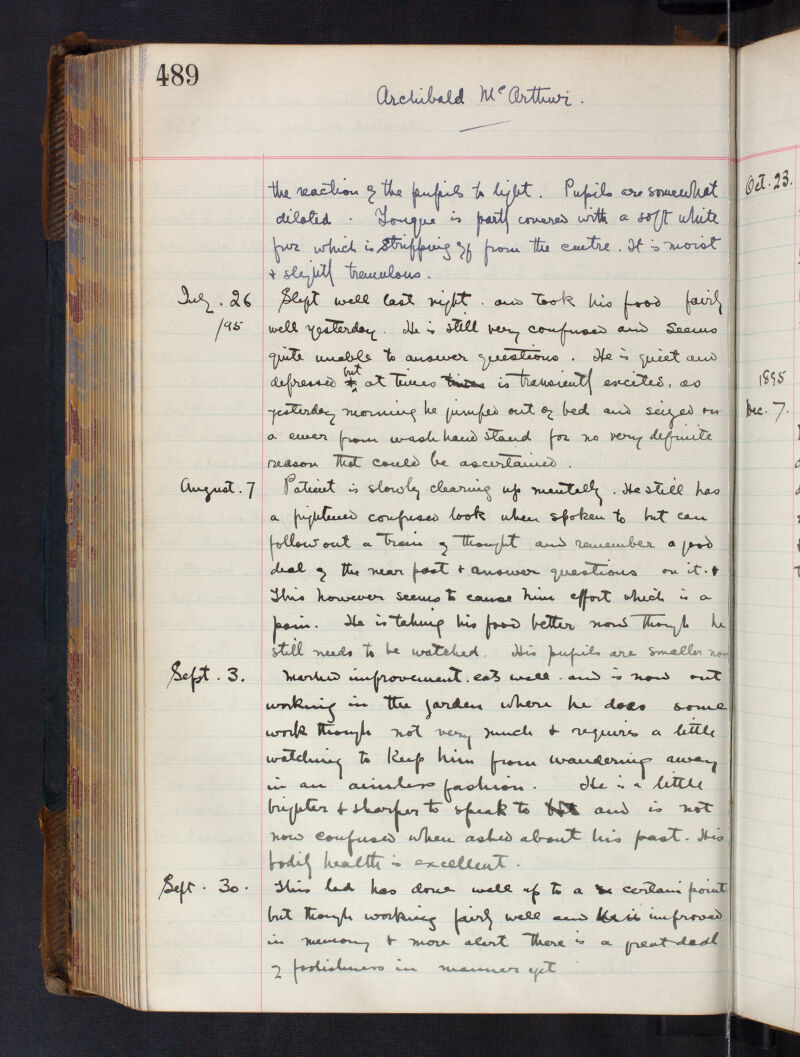 489
Archibald McArthur.
the reaction of the pupils to light. Pupils are somewhat
dilated. Tongue is partly covered with a soft white
fur which is stripping off from the centre. It is moist
& slightly tremulous.
July. 26 Slept well last night. and took his food fairly
/95 well yesterday. He is still very confused and seems
quite unable to answer questions. He is quiet and
defressed but at times times is transiently excited, as
yesterday morning he jumped out of bed and seized on
a ewer from wash hand stand for no very definite
reason that could be ascertained.
August. 7 Patient is slowly clearing up mentally. He still has
a frightened confused look when spoken to but can
follow out a train of thought and remember a good
deal of the near past & answer questions on it. &
This however seems to cause him effort which is a
pain. He is taking his food better now though he
still needs to be watched. His pupils are smaller now
Sept. 3. Marked improvement. eats well. and is now out
working in the garden where he does some
work though not very much & requires a little
watching to keep him from wandering away
in an aimless fashion. He is a little
brighter & sharper to speak to and is not
now confused when asked about his past. His
bodily health is excellent.
Sept. 30. This lad has done well up to a certain point
but though working fairly well and improved
in memory & more alert there is a great deal
of foolishness in manner yet
Oct. 23.
1895
Dec. 7.